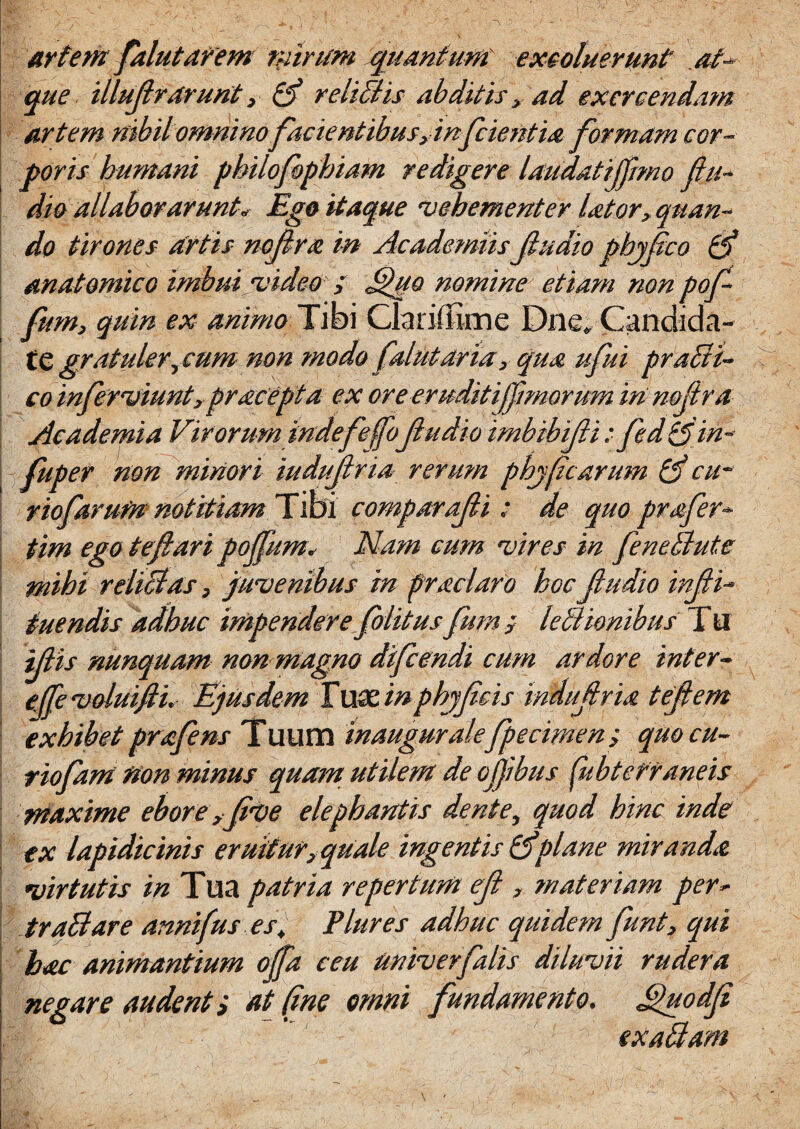 artem ſalutarem mirum quantum excoluerunt at-
que illuſtrarunt, & relictis abditis, ad exercendam
artem nihil omnino facientibus, in ſcientiæ formam cor-
poris humani philoſophiam redigere laudatiſſimo ſtu-
dio allaborarunt. Ego itaque vehementer lætor, quan-
do tirones artis noſtræ in Academiis ſtudio phyſico &
anatomico imbui video ; Quo nomine etiam non poſ-
ſum, quin ex animo Tibi Clariſſime Dne. Candida-
te gratuler, cum non modo ſalutaria, quæ uſui practi-
co inſerviunt, præcepta ex ore eruditiſſimorum in noſtra
Academia Virorum indefeſſo ſtudio imbibiſti : ſed & in-
ſuper non minori iuduſtria rerum phyſicarum & cu-
rioſarum notitiam Tibi comparaſti : de quo præſer-
tim ego teſtari poſſum. Nam cum vires in ſenectute
mihi relictas, juvenibus in præclaro hoc ſtudio inſti-
tuendis adhuc impendere ſolitus ſum ; lectionibus Tu
iſtis nunquam non magno diſcendi cum ardore inter-
eſſe voluiſti. Ejusdem Tuæ in phyſicis induſtriæ teſtem
exhibet præſens Tuum inaugurale ſpecimen ; quo cu-
rioſam non minus quam utilem de oſſibus ſubterraneis
maxime ebore, ſive elephantis dente, quod hinc inde
ex lapidicinis eruitur, quale ingentis & plane mirandæ
virtutis in Tua patria repertum eſt, materiam per-
tractare anniſus es. Plures adhuc quidem ſunt, qui
hæc animantium oſſa ceu univerſalis diluvii rudera
negare audent ; at ſine omni fundamento. Quodſi
exactam